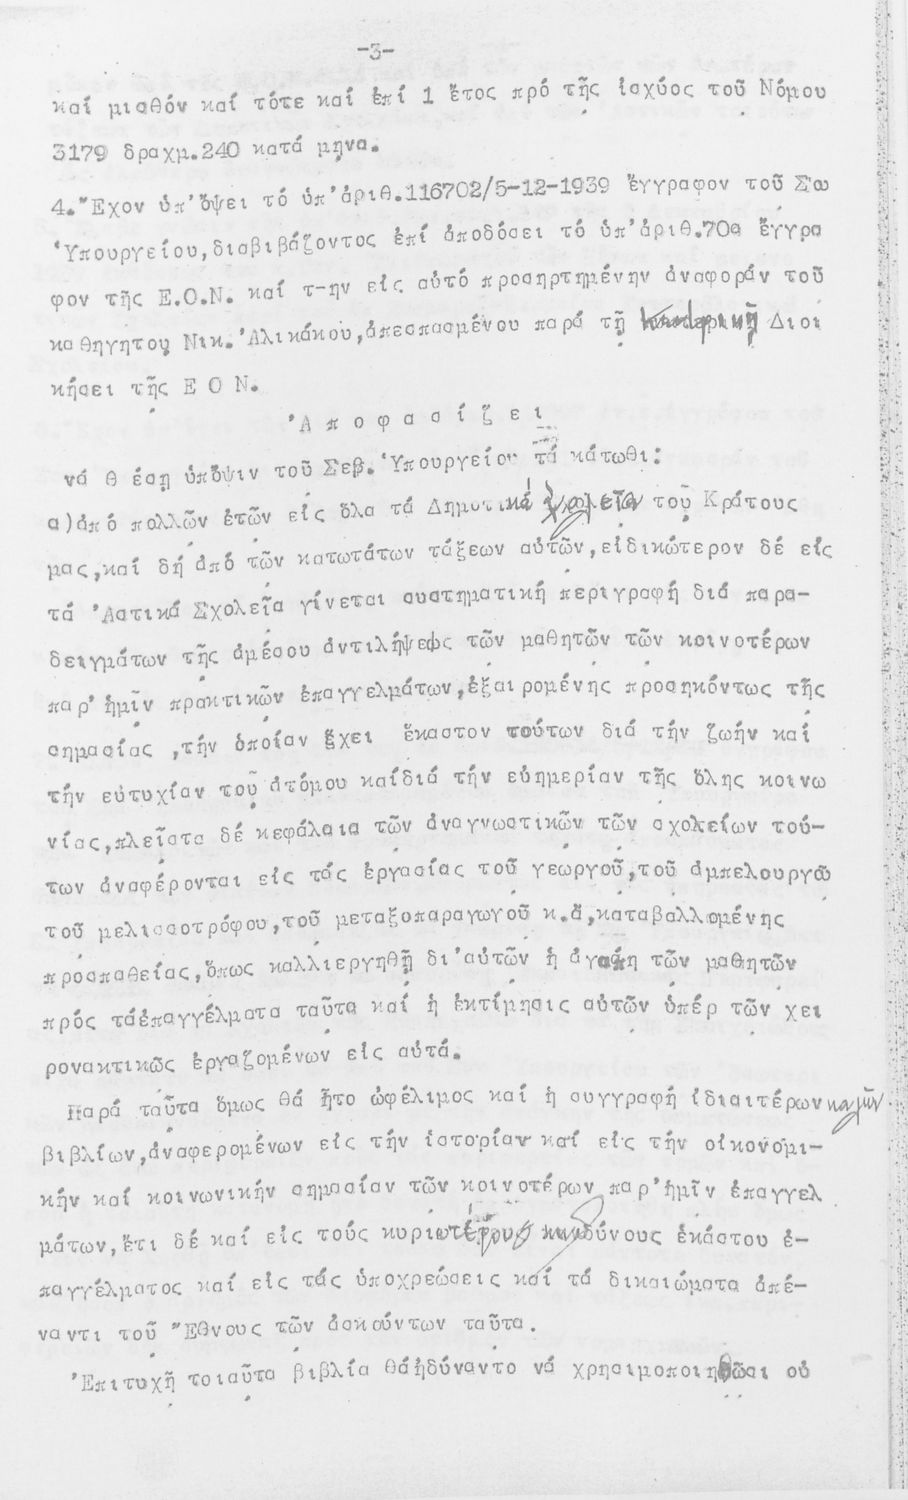 -3-
καί μισθόν καί τότε καί ἐπί 1 ἔτος πρό τῆς ἰσχύος τοῦ Νόμου
3179 δραχμ.240 κατά μῆνα.
4. Ἔχον ὑπ' ὄψει τό ὑπ' ἀριθ.116702/5-12-1939 ἔγγραφον τοῦ Σου
Ὑπουργείου, διαβιβάζοντος ἐπί ἀποδόσει τό ὑπ' ἀριθ.70α ἔγγρα
φον τῆς Ε.Ο.Ν. καί τ-ην εἰς αὐτό προσηρτημένην ἀναφοράν τοῦ
καθηγητοῦ Νικ. Ἀλικάκου, ἀπεσπασμένου παρά τῇ Διοι
κήσει τῆς Ε Ο Ν.
Ἀ π ο φ α σ ί ζ ε ι
νά θ έσῃ ὑπὄψιν τοῦ Σεβ. Ὑπουργείου τά κάτωθι:
α)ἀπό πολλῶν ἐτῶν εἰς ὅλα τά Δημοτικά Σχολεῖα τοῦ Κράτους
μας, καί δή ἀπό τῶν κατωτάτων τάξεων αὐτῶν, εἰδικώτερον δέ εἰς
τά Ἀστικά Σχολεῖα γίνεται συστηματική περιγραφή διά παρα-
δειγμάτων τῆς ἀμέσου ἀντιλήψεως τῶν μαθητῶν τῶν κοινοτέρων
παρ' ἡμῖν πρακτικῶν ἐπαγγελμάτων, ἐξαιρομένης προσηκόντως τῆς
σημασίας ,τήν ὁποίαν ἔχει ἕκαστον τούτων διά τήν ζωήν καί
τήν εὐτυχίαν τοῦ ἀτόμου καίδιά τήν εὐημερίαν τῆς ὅλης κοινω
νίας, πλεῖστα δέ κεφάλαια τῶν ἀναγνωστικῶν τῶν σχολείων τού-
των ἀναφέρονται εἰς τάς ἐργασίας τοῦ γεωργοῦ, τοῦ ἀμπελουργοῦ
τοῦ μελισσοτρόφου, τοῦ μεταξοπαραγωγοῦ κ.ἄ, καταβαλλομένης
προσπαθείας, ὅπως καλλιεργηθῇ δι' αὐτῶν ἡ ἀγάπη τῶν μαθητῶν
πρός τάἐπαγγέλματα ταῦτα καί ἡ ἐκτίμησις αὐτῶν ὑπέρ τῶν χει
ρονακτικῶς ἐργαζομένων εἰς αὐτά.
Παρά ταῦτα ὅμως θά ἦτο ὠφέλιμος καί ἡ συγγραφή ἰδιαιτέρων καλῶν
βιβλίων, ἀναφερομένων εἰς τήν ἱστορίαν καί εἰς τήν οἰκονομι-
κήν καί κοινωνικήν σημασίαν τῶν κοινοτέρων παρ' ἡμῖν ἐπαγγελ
μάτων, ἔτι δέ καί εἰς τούς κυριωτέρους κινδύνους ἑκάστου ἐ-
παγγέλματος καί εἰς τάς ὑποχρεώσεις καί τά δικαιώματα ἀπέ-
ναντι τοῦ Ἔθνους τῶν ἀσκούντων ταῦτα.
Ἐπιτυχῆ τοιαῦτα βιβλία θάἠδύναντο νά χρησιμοποιηθῶσι οὐ